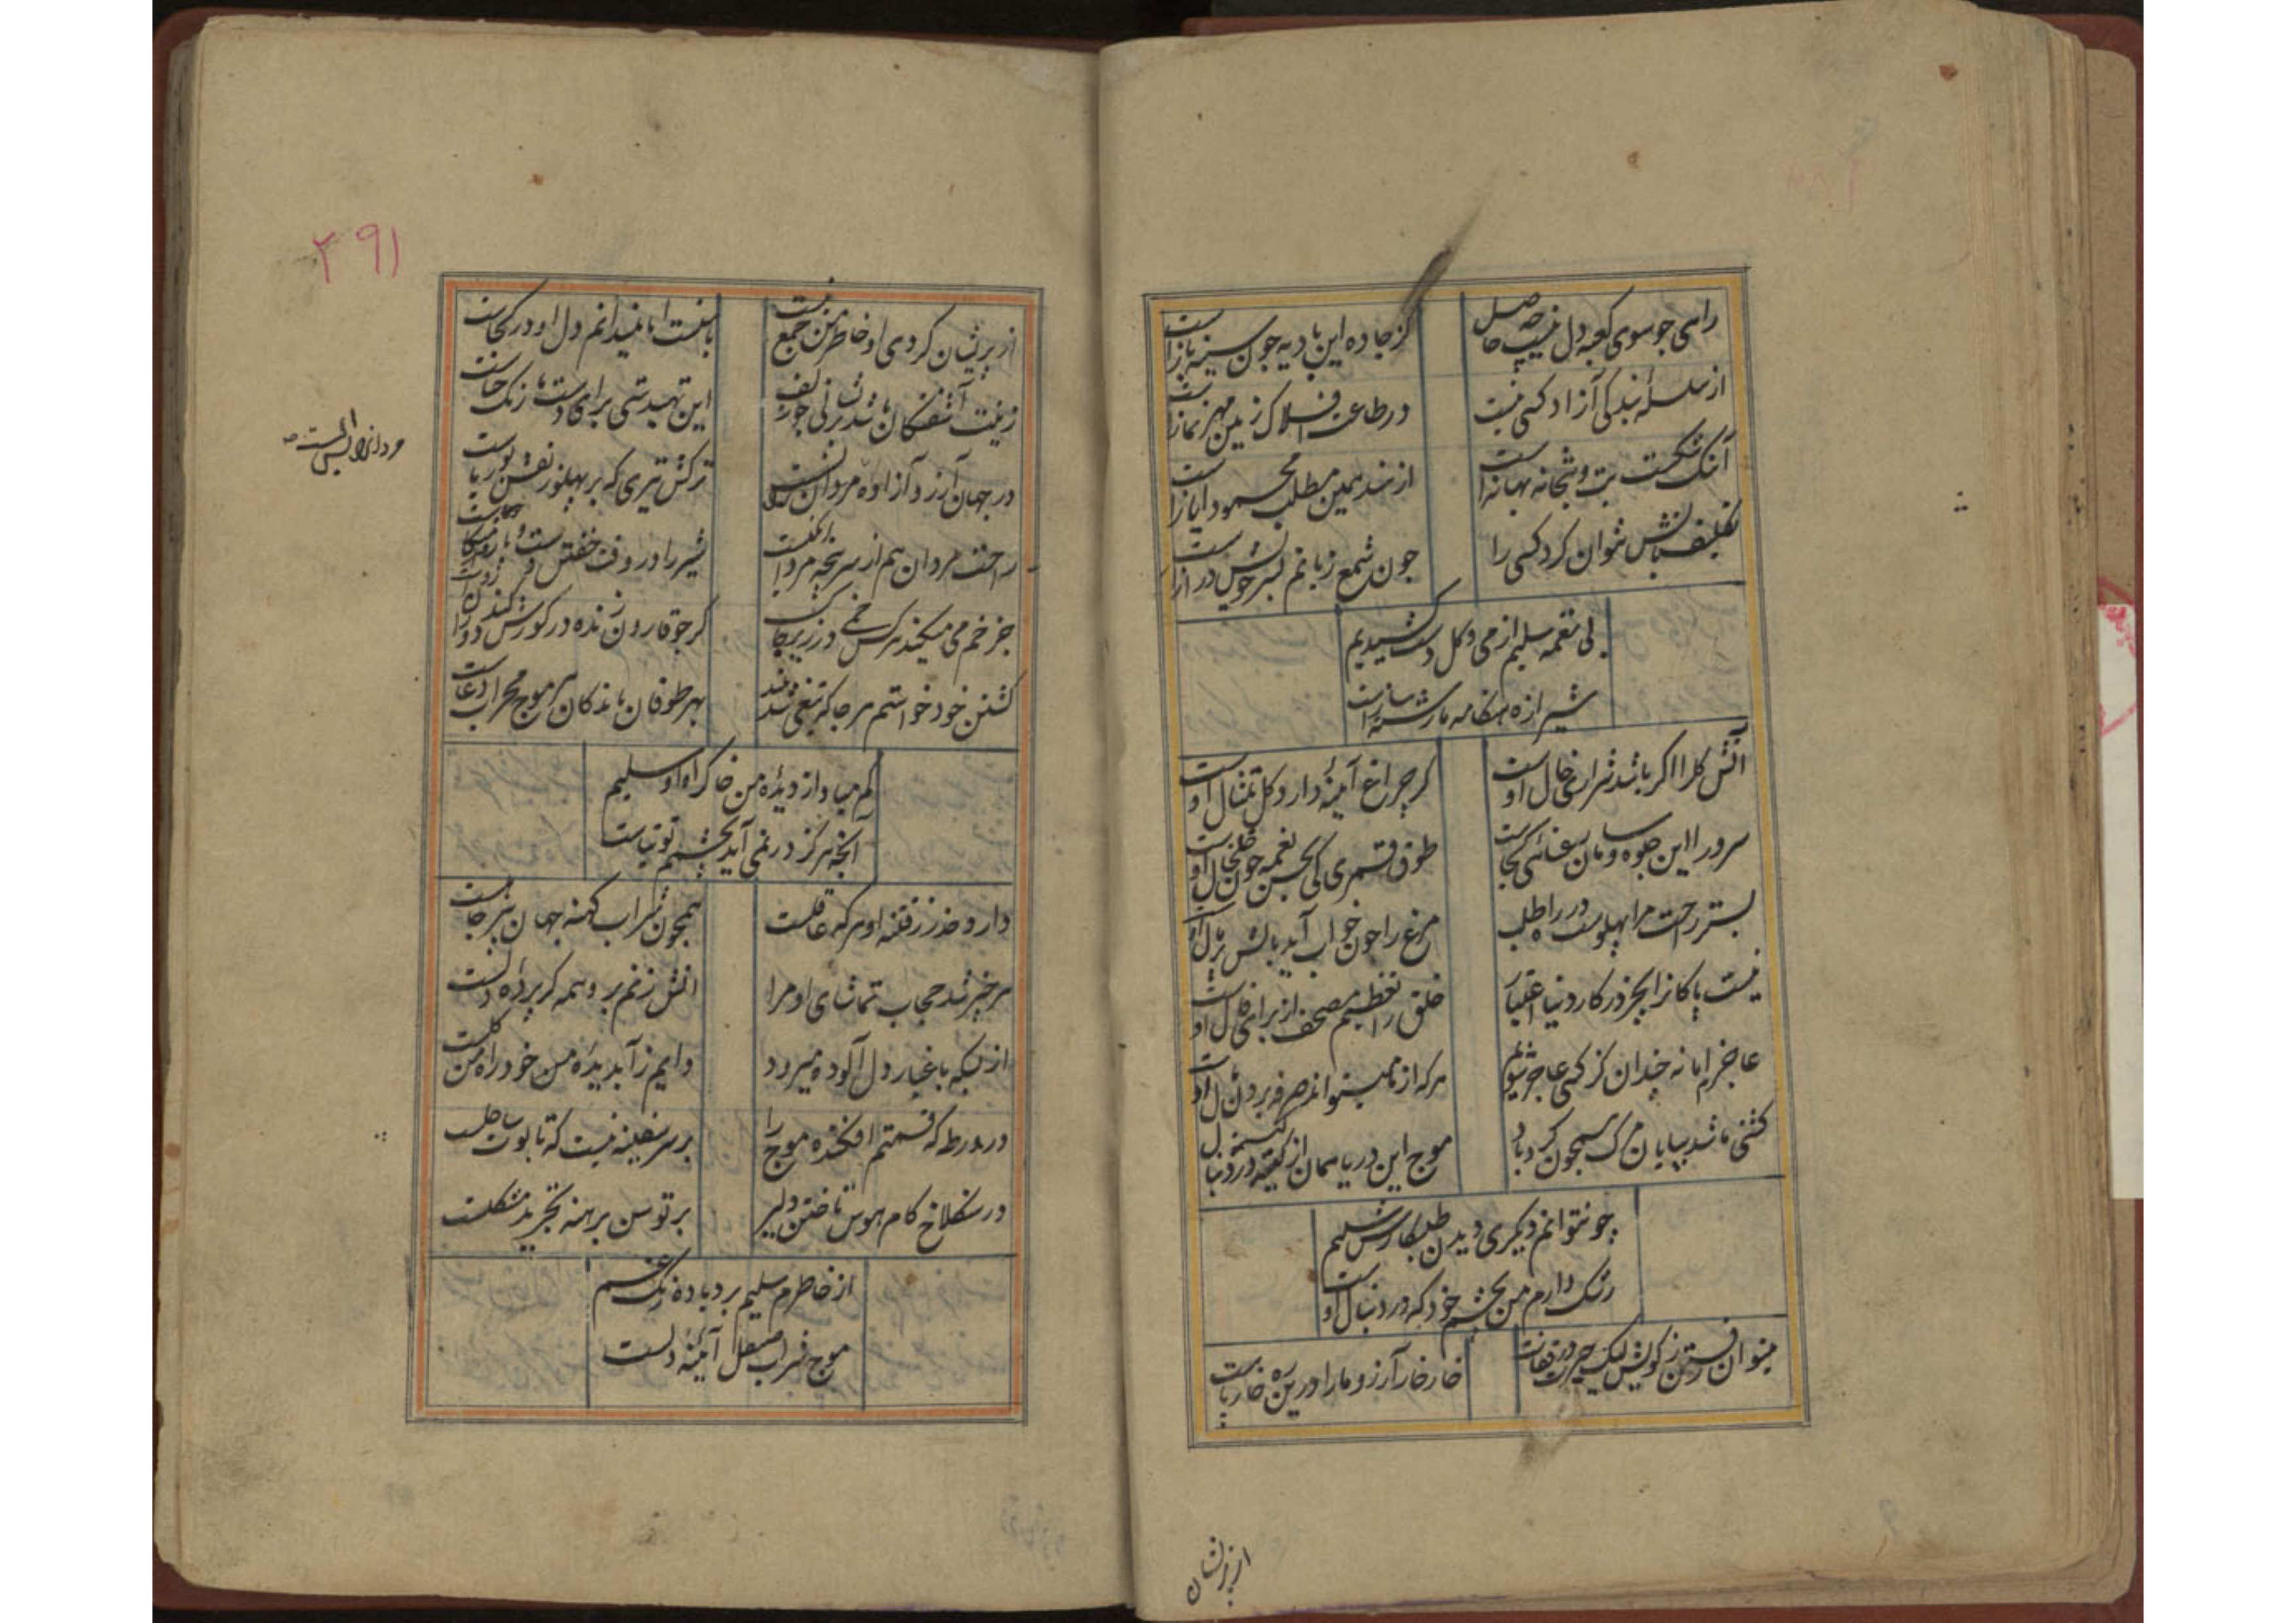 راهی چو سوی کعبه دل نیست چه حاصل
کز جاده این بادیه چون سینه باز است
از سلسله بندگی آزاد کسی نیست
در طاعت افلاک زمین مهر نماز است
آنکس بت و بتخانه بهانه است
از هند همین مطلب محمود ایاز است
نتوان کرد کسی را
چون شمع زبانم بسر خویش دراز است
بی نغمه سلیم از می و گل دست کشیدیم
شیرازه هنگامه ما رشته ساز است
آتش گل را اگر باشد شراری خال اوست
گر چراغ آینه دارد گل تمثال اوست
سرو را این جلوه و سامان رعنائی کجاست
طوق قمری کی بحسن نغمه چون خلخال اوست
بستر راحت مرا پهلوست در راه طلب
مرغ را چون خواب آید بالش پر بال اوست
نیست پاکانرا بجز در کار دنیا اعتبار
خلق را تعظیم مصحف از برای فال اوست
عاجزم اما نه چندان کز کسی عاجز شوم
هرکه از ما میتواند صرفه بردن مال اوست
کشتی ما شد بپایان مرگ همچون گردباد
موج این دریا همان از کینه در دنبال اوست
چو نتوانم دیگری دیدن طلبکارش سلیم
رشک دارم من بچشم خود که در دنبال اوست
میتوان رفتن ز کویش لیک حیرت در قفاست
خار خار آرزو ما را درین ره خار پاست
از پریشان
۲۹۱
از پریشان کردی او خاطر من جمع نیست
با منست اما نمیدانم دل او در کجاست
زینت آشفتگان باشد پریشانی چو زلف
این تهیدستی برای دست ما رنگ حناست
در جهان آرزو آزاده مردان را بس است
ترکش تیری که بر پهلو ز نقش بوریاست
راحت مردان هم از سرپنجه مردانگیست
شیر را در وقت خفتن دست و بازو متکاست
جز خم می میکند هرکس خمی در زیر خاک
گر چو قارون زنده در گورش کنند آن را رواست
کشتن خود خواستم هرجا که تیغی شد بلند
بهر طوفان ماندگان هر موج محراب دعاست
کم مباد از دیده من خاک راه او سلیم
آنچه هرگز در نمی آید بچشمم توتیاست
دارد حذر ز فتنه او هرکه عاقلست
همچون شراب کهنه جهان پیر جاهلست
هر چیز شد حجاب تماشای او مرا
آتش زنم برو همه گر پرده دلست
از بسکه با غبار دل آلوده میرود
دایم ز آب دیده من خود راه من گلست
در ورطه که قسمتم افکنده موج را
بر سر سفینه نیست که تابوت ساحلست
در سنگلاخ کام هوس تاختن دلیر
بر توسن برهنه تجرید مشکلست
از خاطرم سلیم برد باده زنگ غم
موج شراب صیقل آئینه دلست